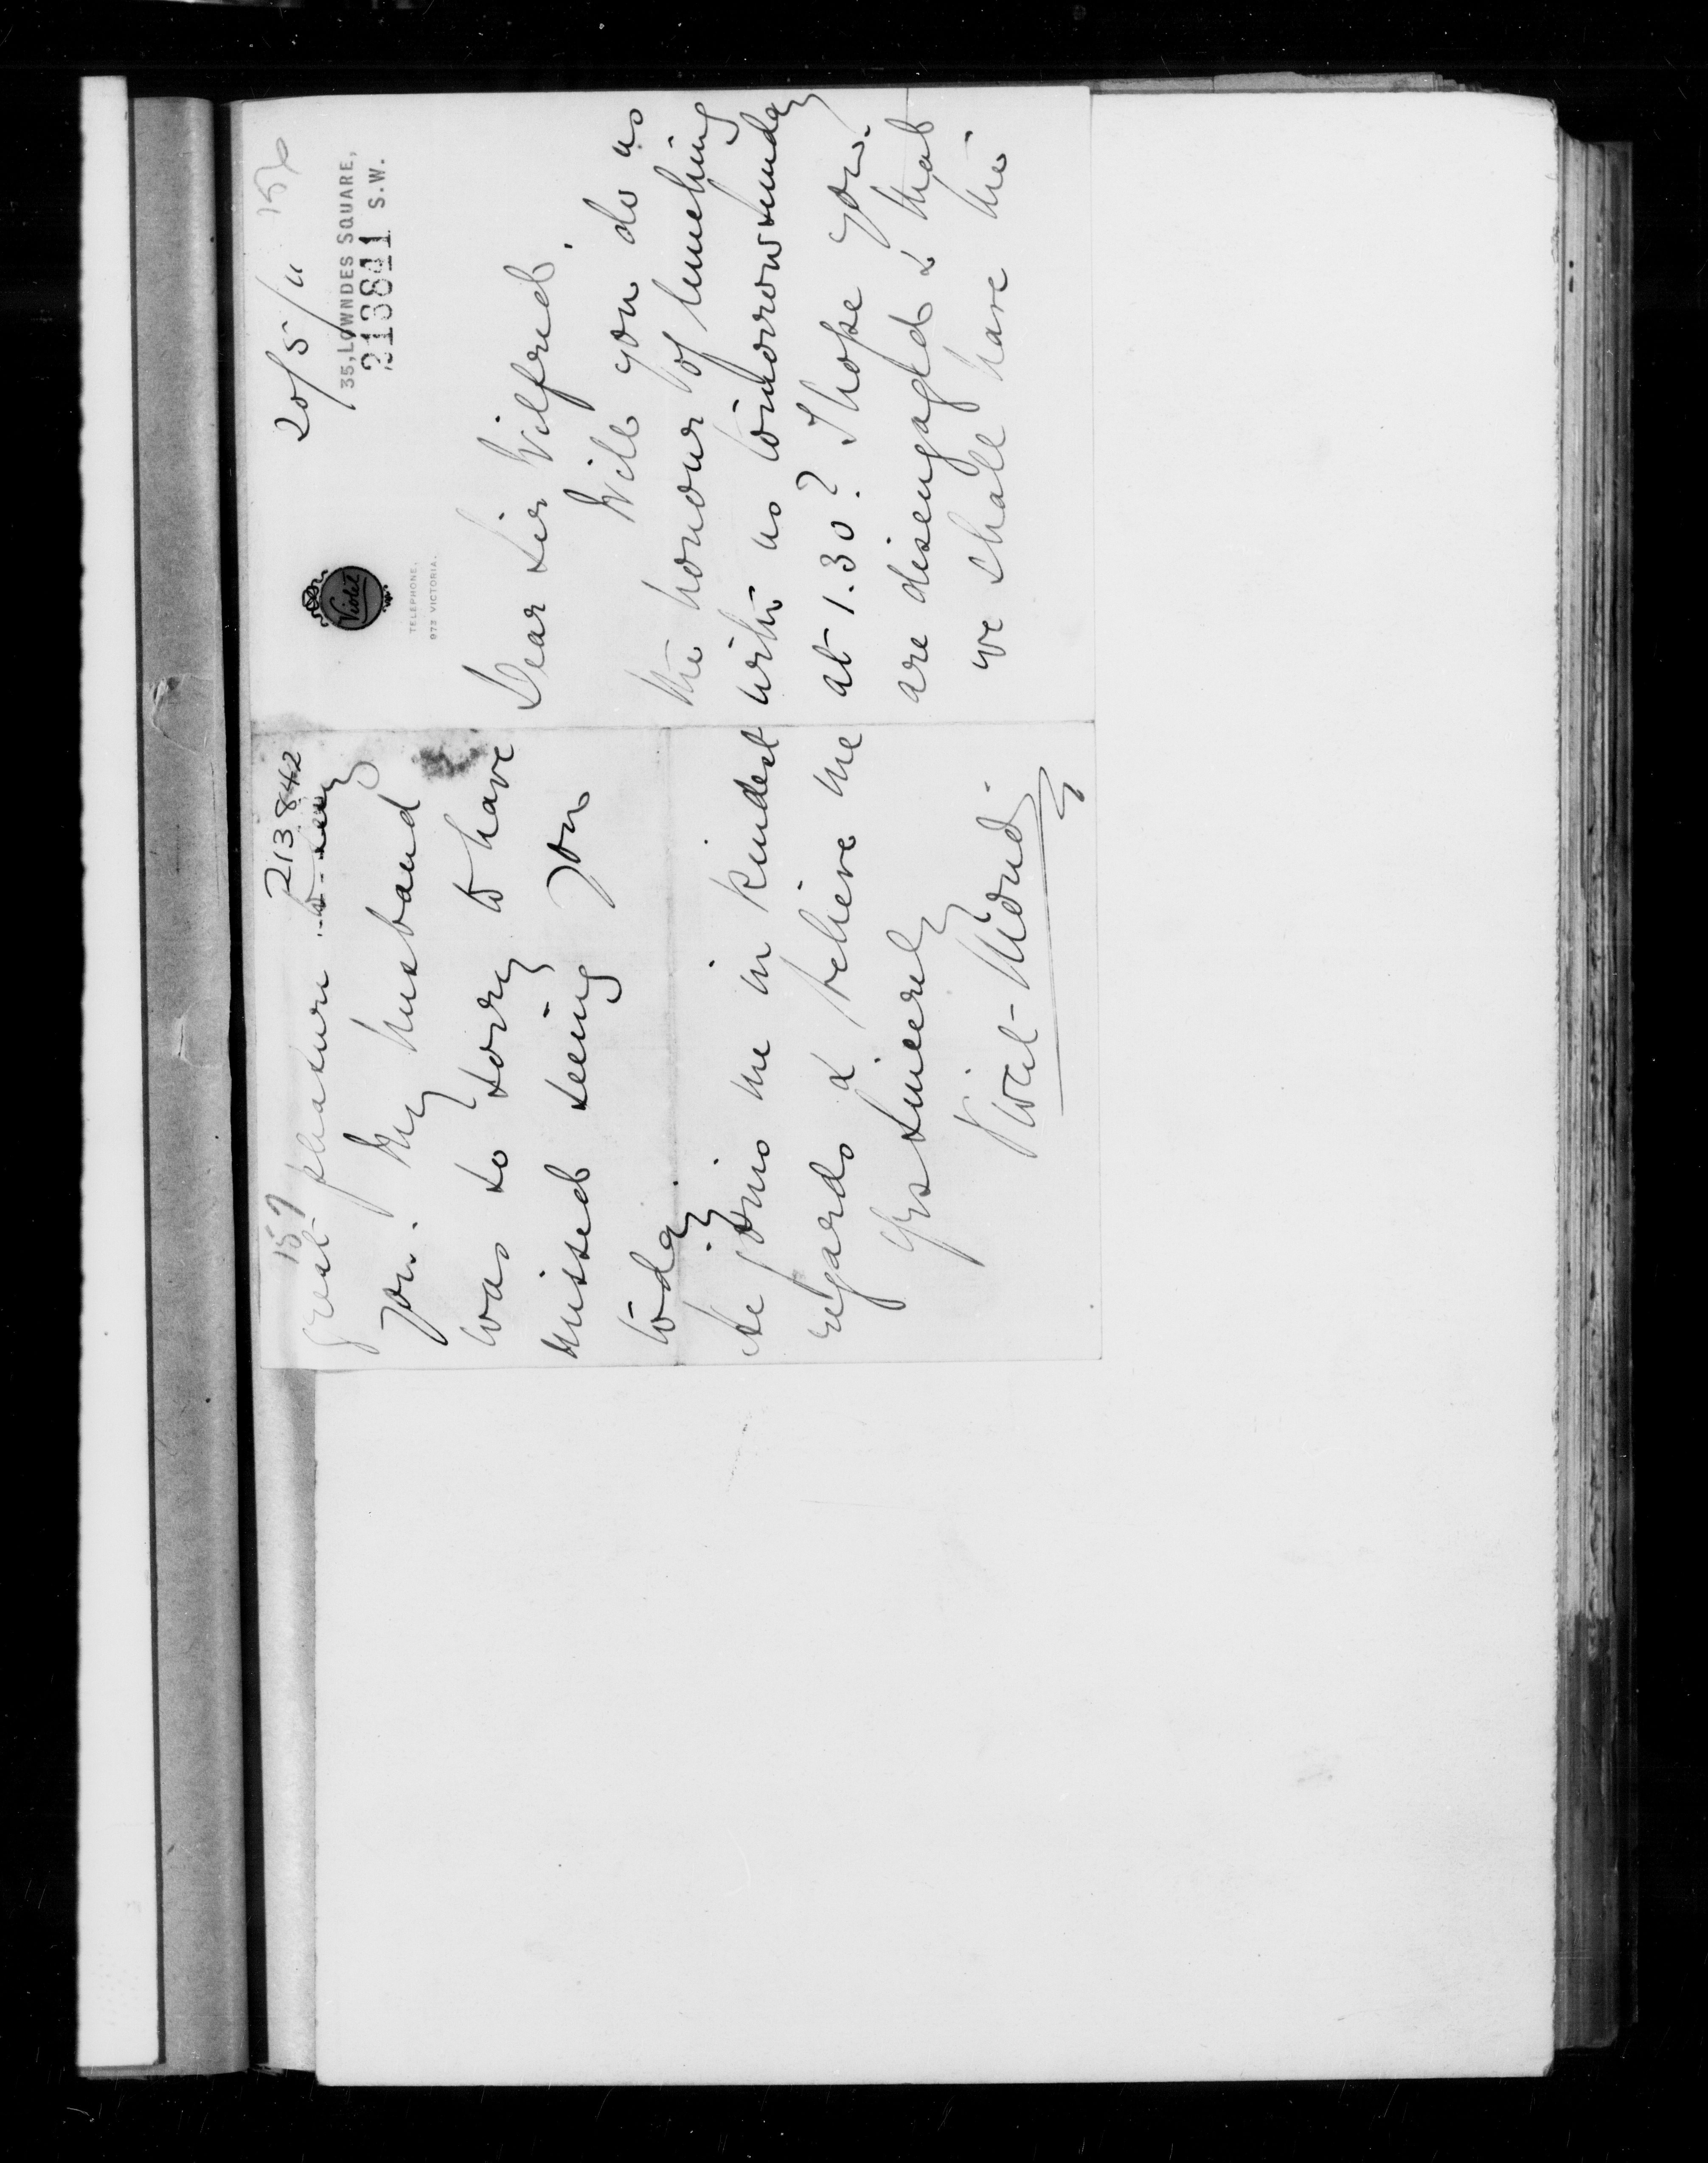 156
20/5/11
35, LOWNDES SQUARE,
213841 S.W.
Violet
TELEPHONE.
973 VICTORIA.
Dear Sir Wilfred,
Will you do us
the honour of lunching
with us tomorrow Sunday
at 1.30? I hope you
are disengaged & that
we shall have the
213842
157
great pleasure to see
you. My husband
was so sorry to have
missed seeing you
today.
He joins me in kindest
regards & believe me
Yrs sincerely
Violet Mond.